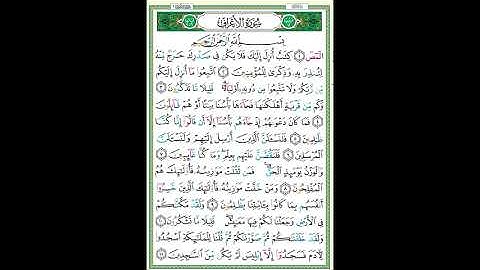 سُورَةُ الأَعْرَافِ
بِسْمِ اللَّهِ الرَّحْمَٰنِ الرَّحِيمِ
الٓمٓصٓ ١ كِتَٰبٌ أُنزِلَ إِلَيْكَ فَلَا يَكُن فِي صَدْرِكَ حَرَجٌ مِّنْهُ
لِتُنذِرَ بِهِۦ وَذِكْرَىٰ لِلْمُؤْمِنِينَ ٢ ٱتَّبِعُوا۟ مَآ أُنزِلَ إِلَيْكُم
مِّن رَّبِّكُمْ وَلَا تَتَّبِعُوا۟ مِن دُونِهِۦٓ أَوْلِيَآءَ ۗ قَلِيلًا مَّا تَذَكَّرُونَ ٣
وَكَم مِّن قَرْيَةٍ أَهْلَكْنَٰهَا فَجَآءَهَا بَأْسُنَا بَيَٰتًا أَوْ هُمْ قَآئِلُونَ
٤ فَمَا كَانَ دَعْوَىٰهُمْ إِذْ جَآءَهُم بَأْسُنَآ إِلَّآ أَن قَالُوٓا۟ إِنَّا كُنَّا
ظَٰلِمِينَ ٥ فَلَنَسْـَٔلَنَّ ٱلَّذِينَ أُرْسِلَ إِلَيْهِمْ وَلَنَسْـَٔلَنَّ
ٱلْمُرْسَلِينَ ٦ فَلَنَقُصَّنَّ عَلَيْهِم بِعِلْمٍ ۖ وَمَا كُنَّا غَآئِبِينَ ٧
وَٱلْوَزْنُ يَوْمَئِذٍ ٱلْحَقُّ ۚ فَمَن ثَقُلَتْ مَوَٰزِينُهُۥ فَأُو۟لَٰٓئِكَ هُمُ
ٱلْمُفْلِحُونَ ٨ وَمَنْ خَفَّتْ مَوَٰزِينُهُۥ فَأُو۟لَٰٓئِكَ ٱلَّذِينَ خَسِرُوٓا۟
أَنفُسَهُم بِمَا كَانُوا۟ بِـَٔايَٰتِنَا يَظْلِمُونَ ٩ وَلَقَدْ مَكَّنَّٰكُمْ
فِي ٱلْأَرْضِ وَجَعَلْنَا لَكُمْ فِيهَا مَعَٰيِشَ ۗ قَلِيلًا مَّا تَشْكُرُونَ ١٠
وَلَقَدْ خَلَقْنَٰكُمْ ثُمَّ صَوَّرْنَٰكُمْ ثُمَّ قُلْنَا لِلْمَلَٰٓئِكَةِ ٱسْجُدُوا۟
لِـَٔادَمَ فَسَجَدُوٓا۟ إِلَّآ إِبْلِيسَ لَمْ يَكُن مِّنَ ٱلسَّٰجِدِينَ ١١